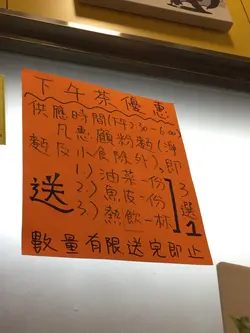 下午茶優惠
供應時間(下午2:30-6:00)
凡惠顧粉麵(淨
麵及小食除外),即
送
1.) 油菜一份
2.) 魚皮一份
3.) 熱飲一杯
3選1
數量有限送完即止